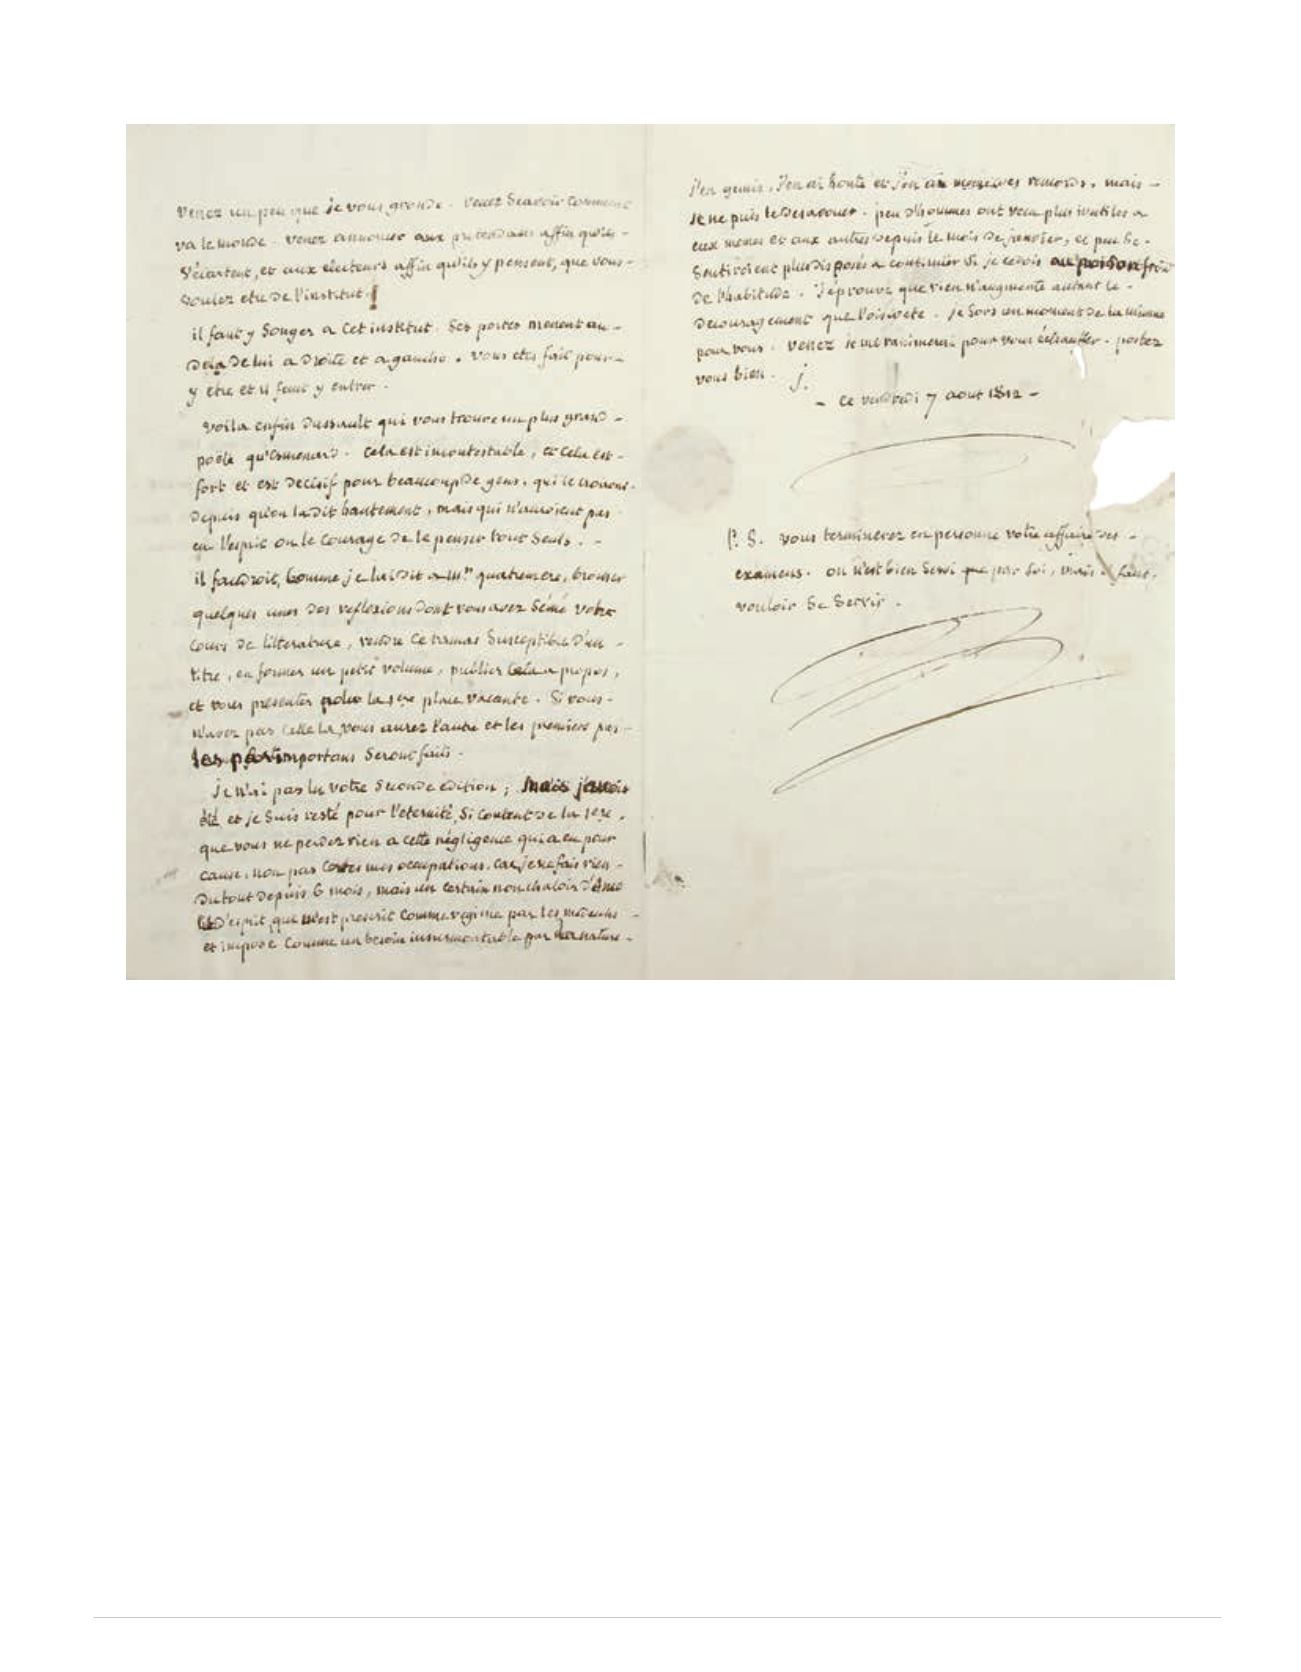 venez un peu que je vous gronde. venez Scavoir comment
va le monde. venez annoncer aux pretendans affin qu'ils -
S'écartent, et aux electeurs affin qu'ils y pensent, que vous -
voulez etre de l'institut.
il faut y Songer a cet institut. Ses portes menent au -
dela de lui a droite et a gauche. vous etes fait pour -
y etre et il faut y entrer.
voila enfin dussault qui vous trouve un plus grand -
poete qu'Esmenard. cela est incontestable, et cela est -
fort et est decisif pour beaucoup de gens, qui le trouvent
depuis qu'on l'a dit hautement, mais qui n'auroient pas
eu l'esprit ou le courage de le penser tout Seuls. -
il faudroit, comme je l'ai dit a Mr quatremere,
quelques unes des reflexions dont vous avez Sémé votre
cours de litterature, rendre ce ramas Susceptible d'un -
titre, en former un petit volume, publier cela a propos,
et vous presenter pour la 1ere place vacante. Si vous -
n'avez pas celle la, vous aurez l'autre et les premiers pas -
les pas importans Seront faits.
je n'ai pas lu votre Seconde edition; mais j'avois
été et je Suis resté pour l'eternité, Si content de la 1ere,
que vous ne perdez rien a cette négligence qui a eu pour
cause, non pas certes mes occupations, car je ne fais rien -
du tout depuis 6 mois, mais un certain nonchaloir d'Ame
et d'esprit, que m'est prescrit comme regime par les medecins -
et imposé comme un besoin insurmontable par la nature -
j'en gemis, j'en ai honte et j'en ai remords, mais -
je ne puis le desavouer. peu d'hommes ont vecu plus inutiles a
eux memes et aux autres depuis le mois de janvier, et peu Se -
Sentiroient plus disposés a continuer Si je cedois au poison froid
de l'habitude. J'éprouve que rien n'augmente autant le -
decouragement que l'oisiveté. je Sors un moment de la mienne
pour vous. venez je me ranimerai pour vous échauffer. portez
vous bien. j.
- ce vendredi 7 aout 1812 -
P. S. vous terminerez en personne votre affaire des -
examens. on n'est bien Servi que par Soi, mais faut
vouloir Se Servir.